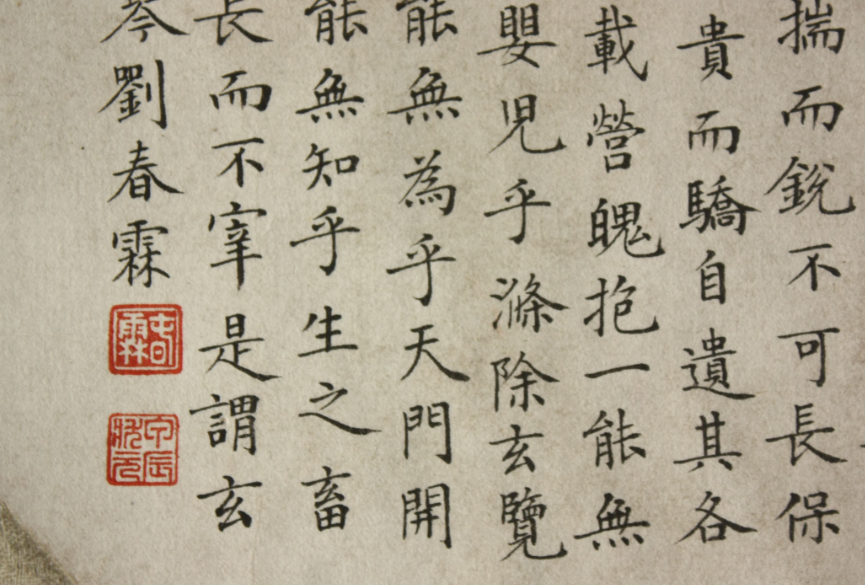 揣而銳不可長保
貴而驕自遺其各
載營魄抱一能無
嬰兒乎滌除玄覽
能無為乎天門開
能無知乎生之畜
長而不宰是謂玄
岑劉春霖
春霖
甲辰狀元